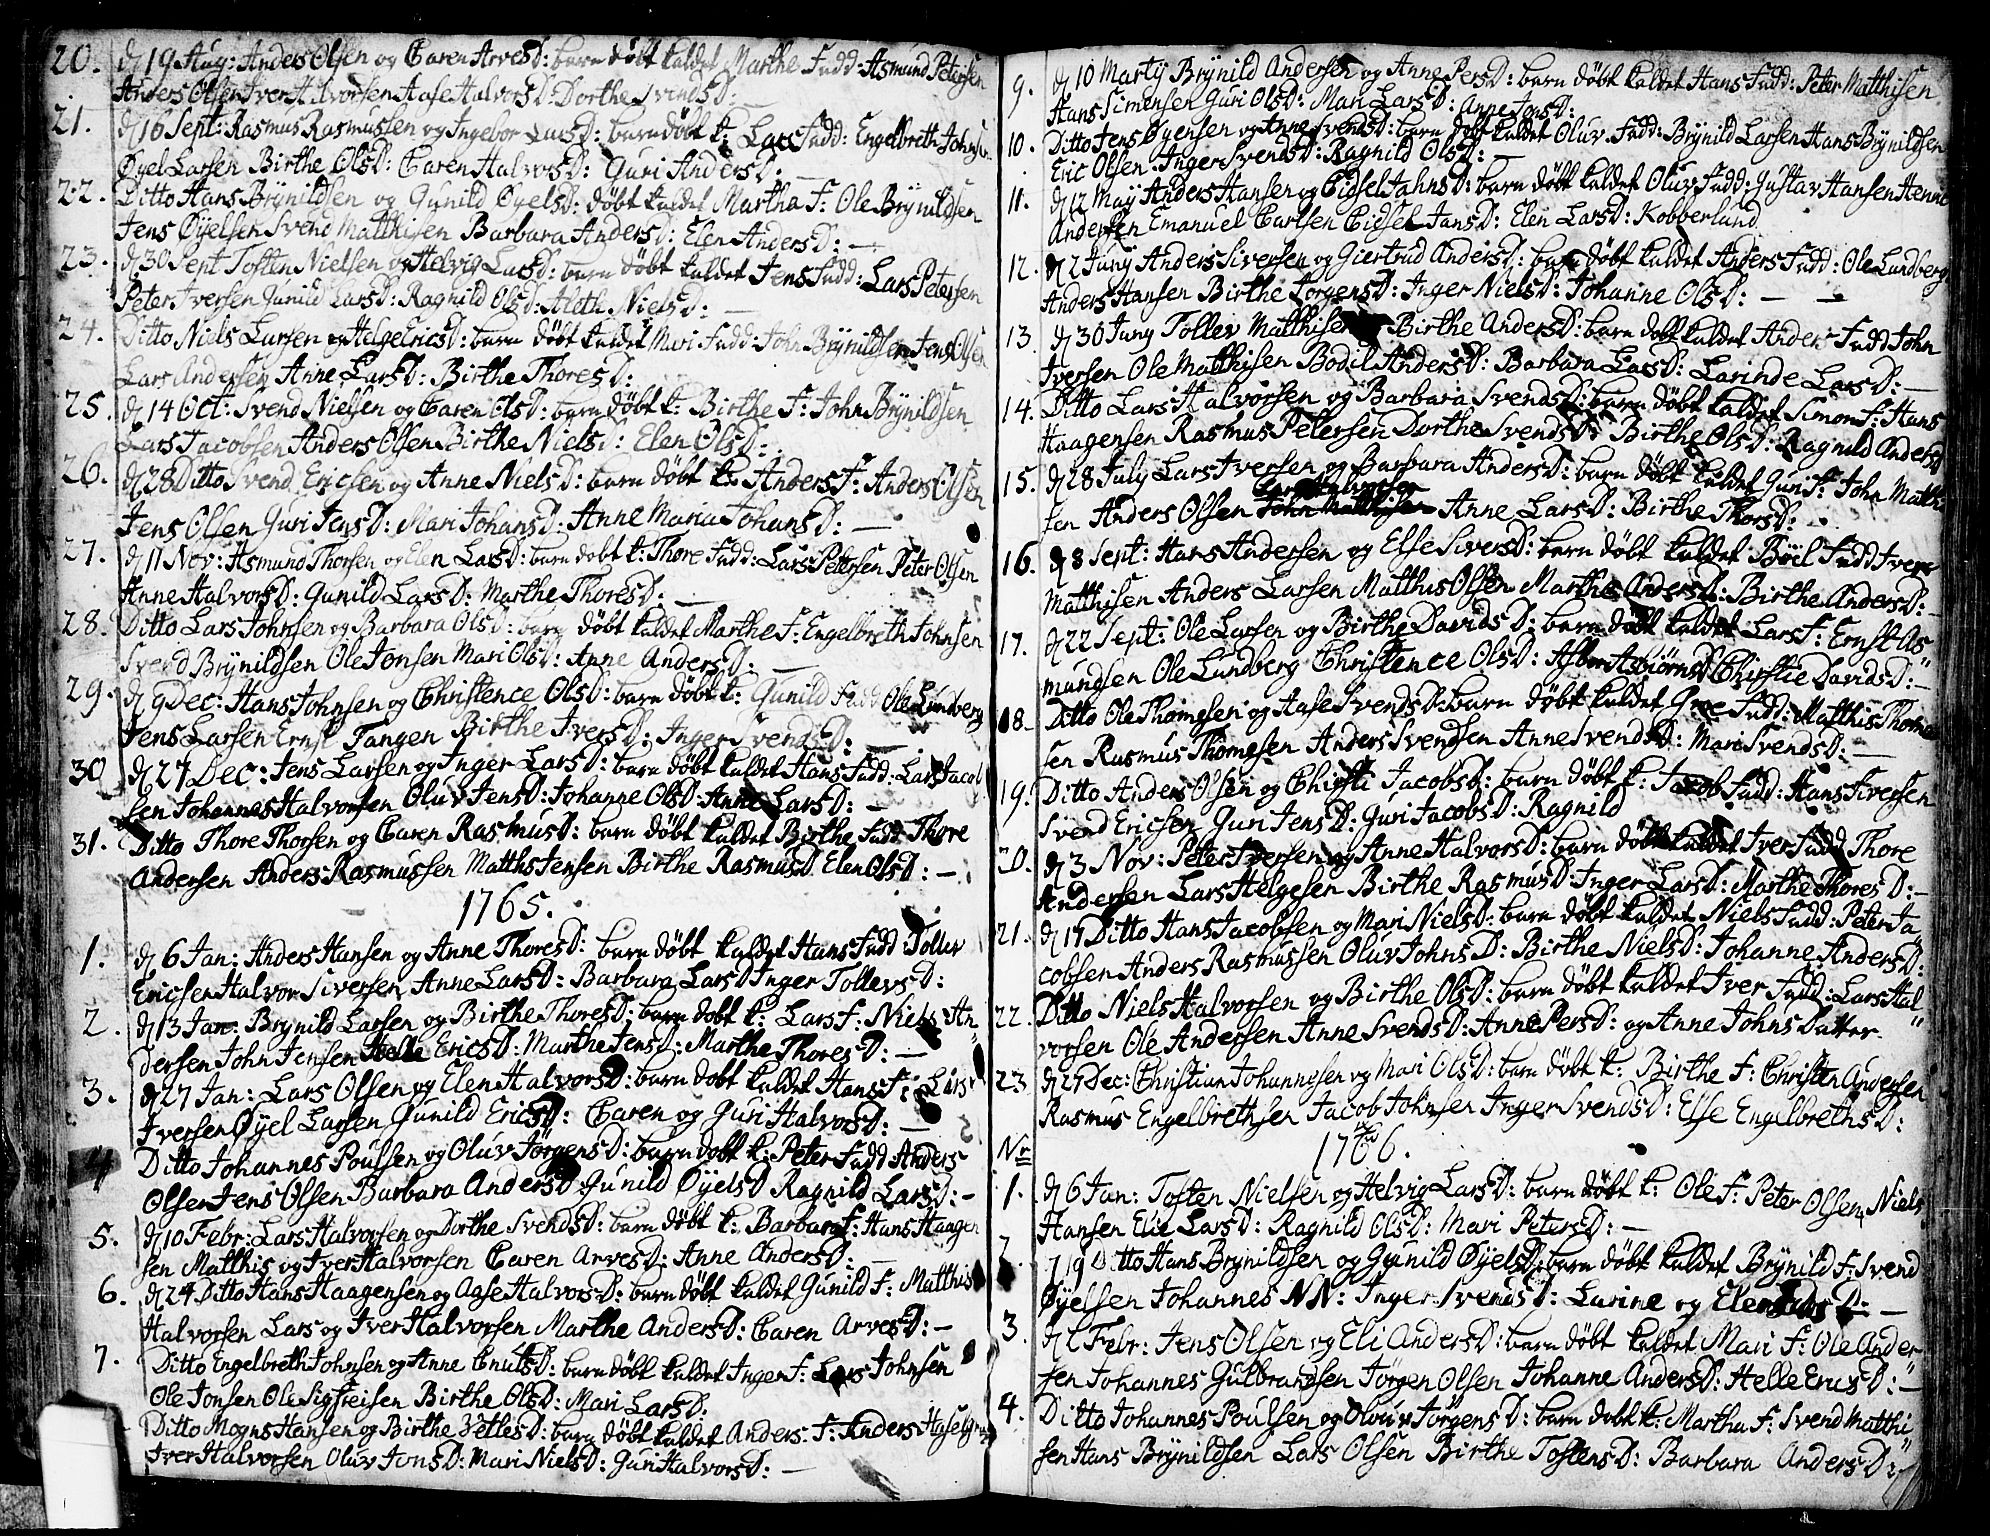 20. d 19 Aug: Anders Olsen og Caren ArvesD: barn döbt kaldet Marthe Fadd: Asmund Petersen
Anders Olsen Iver Halvorsen Aase HalvorsD: Dorthe SvendsD: —
21. d 16 Sept: Rasmus Rasmussen og Ingebor LarsD: barn döbt k: Lars Fadd: Engelbreth Johnsen
Øyel Larsen Birthe OlsD: Caren HalvorsD: Guri AndersD: —
22. Ditto Hans Brynildsen og Gunild ØyelsD: döbt kaldet Martha F: Ole Brynildsen
Jens Øyelsen Svend Matthisen Barbara AndersD: Elen AndersD: —
23. d 30 Sept Tosten Nielsen og Helvig LarsD: barn döbt kaldet Jens Fadd: Lars Petersen
Peter Iversen Gunild LarsD: Ragnild OlsD: Aleth NielsD: —
24. Ditto Niels Larsen og Helge EricsD: barn döbt kaldet Mari Fadd: John Brynildsen Jens Olsen
Lars Andersen Anne LarsD: Birthe ThoresD:
25. d 14 Oct: Svend Nielsen og Caren OlsD: barn döbt k: Birthe F: John Brynildsen
Lars Jacobsen Anders Olsen Birthe NielsD: Elen OlsD:
26. d 28 Ditto Svend Ericsen og Anne NielsD: barn döbt k: Anders F: Anders Olsen
Jens Olsen Guri JensD: Mari JohansD: Anne Maria JohansD: —
27. d 11 Nov: Asmund Thorsen og Elen LarsD: barn döbt k: Thore Fadd: Lars Petersen Peter Olsen
Anne HalvorsD: Gunild LarsD: Marthe ThoresD: —
28. Ditto Lars Johnsen og Barbara OlsD: barn döbt kaldet Marthe F: Engelbreth Johnsen
Svend Brynildsen Ole Jonsen Mari OlsD: Anne AndersD: —
29. d 9 Dec: Hans Johnsen og Christence OlsD: barn döbt k: Gunild Fadd Ole Lundberg
Jens Larsen Ernst Tangen Birthe IversD: Inger SvendsD: —
30 d 27 Dec: Jens Larsen og Inger LarsD: barn döbt kaldet Hans Fadd: Lars Jacob
sen Johannes Halvorsen Oluv JensD: Johanne OlsD: Anne LarsD: —
31. Ditto Thore Thorsen og Caren RasmusD: barn döbt kaldet Birthe Fadd Thore
Andersen Anders Rasmussen Matths Jensen Birthe RasmusD Elen OlsD: —
1765.
1. d 6 Jan: Anders Hansen og Anne ThoresD: barn döbt kaldet Hans Fadd: Toller
Ericsen Halvor Siversen Anne LarsD: Barbara LarsD Inger TollevsD:
2. d 13 Jan: Brynild Larsen og Birthe ThoresD: barn döbt k: Lars F: Niels An
dersen John Jensen Helle EricsD: Marthe JensD: Marthe ThoresD: —
3. d 27 Jan: Lars Olsen og Elen HalvorsD: barn döbt kaldet Hans F: Lars
Iversen Øyel Larsen Gunild EricsD: Caren og Guri HalvorsD: —
4 Ditto Johannes Poulsen og Oluv JørgensD: barn döbt k: Peter Fadd Anders
Olsen Jens Olsen Barbara AndersD: Gunild ØyelsD Ragnild LarsD: —
5. d 10 Febr: Lars Halvorsen og Dorthe SvendsD: barn döbt k: Barbara F: Hans Haagen
sen Matthis og Iver Halvorsen Caren ArvesD: Anne AndersD: —
6. d 24 Ditto Hans Haagensen og Aase HalvorsD: barn döbt kaldet Gunild F: Matthis
Halvorsen Lars og Iver Halvorsen Marthe AndersD: Caren ArvesD: —
7. Ditto Engelbreth Johnsen og Anne CnutsD: barn döbt kaldet Inger F: Lars Johnsen
Ole Jonsen Ole Sigfreisen Birthe OlsD: Mari LarsD:
Ditto Mogns Hansen og Birthe VetlesD: barn döbt kaldet Anders F: Anders
Iver Halvorsen Oluv JonsD: Mari NielsD: Guri HalvorsD: —
9. d 10 Martij Brynild Andersen og Anne PersD: barn döbt kaldet Hans Fadd: Peter Matthisen
Hans Simensen Guri OlsD: Mari LarsD: Anne JonsD:
10. Ditto Jens Øyensen og Anne SvendsD: barn döbt kaldet Oluv Fadd: Brynild Larsen Hans Brynildsen
Eric Olsen Inger SvendsD: Ragnild OlsD: —
11. d 12 May Anders Hansen og Cidsel JahnsD: barn döbt kaldet Oluv Fadd: Gustav Hansen Henne
Andersen Emanuel Carlsen Cidsel JansD: Elen LarsD: Kobberland
12. d 2 Juny Anders Siversen og Giertrud AndersD: barn döbt kaldet Anders Fadd: Ole Lundberg
Anders Hansen Birthe JørgensD: Inger NielsD: Johanne OlsD: — —
13. d 30 Juny Tollev Matthisen Birthe AndersD: barn döbt kaldet Anders Fadd John
Iversen Ole Matthisen Bodil AndersD: Barbara LarsD: Larinde LarsD: —
14. Ditto Lars Halvorsen og Barbara SvendsD: barn döbt kaldet Simon F: Hans
Haagensen Rasmus Petersen Dorthe SvendsD: Birthe OlsD: Ragnild AndersD
15. d 28 July Lars Iversen og Barbara AndersD: barn döbt kaldet Guri F: John Matthi
Lars Halvorsen
sen Anders Olsen John Matthisen Anne LarsD: Birthe ThorsD:
16. d 8 Sept: Hans Andersen og Else SiversD: barn döbt kaldet Böil Fadd Iver
Matthisen Anders Larsen Matthis Olsen Marthe AndersD: Birthe AndersD: —
17. d 22 Sept: Ole Larsen og Birthe DavidsD: barn döbt kaldet Lars F: Ernst As
mundsen Ole Lundberg Christence OlsD: AsbiørnsD Christie DavidsD: —
18. Ditto Ole Thomesen og Aase SvendsD: barn döbt kaldet Fadd: Matthis Thome
sen Rasmus Thomesen Anders Svendsen Anne SvendsD: Mari SvendsD: —
19. Ditto Anders Olsen og Christi JacobsD: barn döbt k: Jacob Fadd: Hans Iversen
Svend Ericsen Guri JensD: Guri JacobsD: Ragnild
20. d 3 Nov: Peter Iversen og Anne HalvorsD: barn döbt kaldet Iver Fadd Thore
Andersen Lars Helgesen Birthe RasmusD Inger LarsD: Marthe ThoresD: —
21. d 17 Ditto Hans Jacobsen og Mari NielsD: barn döbt kaldet Niels Fadd: Peter Ja
cobsen Anders Rasmussen Oluv JohnsD: Birthe NielsD: Johanne AndersD:
22. Ditto Niels Halvorsen og Birthe OlsD: barn döbt kaldet Iver Fadd: Lars Hal
vorsen Ole Andersen Anne SvendsD: Anne PersD: og Anne Johns Datter
23 d 27 Dec: Christian Johannesen og Mari OlsD: barn döbt k: Birthe F: Christen Andersen
Rasmus Engelbrethsen Jacob Johnsen Inger SvendsD: Else EngelbrethsD:
No 1766.
1. d 6 Jan: Tosten Nielsen og Helvig LarsD: barn döbt k: Ole F: Peter Olsen Niels
Hansen Elie LarsD: Ragnild OlsD: Mari PetersD: —
2 19 Ditto Hans Brynildsen og Gunild ØyelsD: barn döbt kaldet Brynild F: Svend
Øyelsen Johannes NN: Inger SvendsD: Larine og Elen D: —
3. d 2 Febr: Jens Olsen og Eli AndersD: barn döbt kaldet Mari F: Ole Ander
sen Johannes Gulbrandsen Jørgen Olsen Johanne AndersD: Helle EricsD: —
4. Ditto Johannes Poulsen og Oluv JørgensD: barn döbt k: Martha F: Svend Matthi
sen Hans Brynildsen Lars Olsen Birthe TostensD: Barbara AndersD: